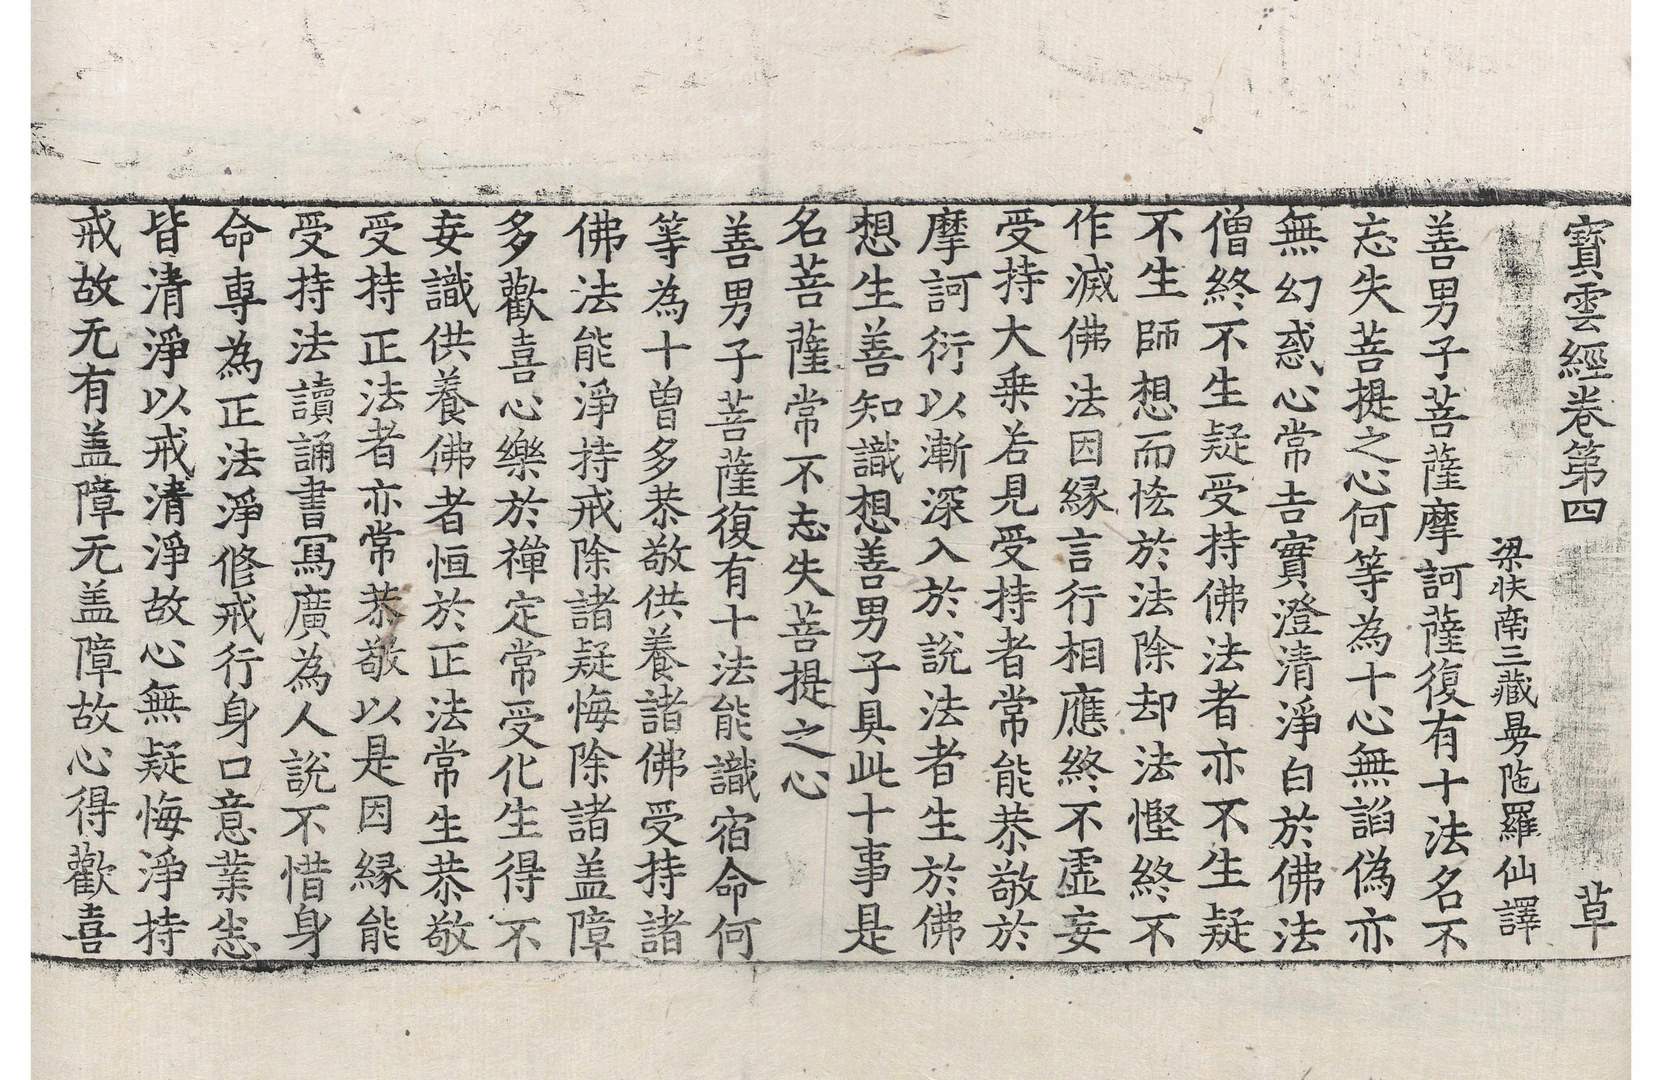 寶雲經卷第四 草
梁扶南三藏曼陁羅仙譯
善男子菩薩摩訶薩復有十法名不
忘失菩提之心何等為十心無諂偽亦
無幻惑心常吉實澄清淨白於佛法
僧終不生疑受持佛法者亦不生疑
不生師想而恡於法除却法慳終不
作滅佛法因縁言行相應終不虛妄
受持大乗若見受持者常能恭敬於
摩訶衍以漸深入於說法者生於佛
想生善知識想善男子具此十事是
名菩薩常不忘失菩提之心
善男子菩薩復有十法能識宿命何
等為十曾多恭敬供養諸佛受持諸
佛法能淨持戒除諸疑悔除諸盖障
多歡喜心樂於禪定常受化生得不
妄識供養佛者恒於正法常生恭敬
受持正法者亦常恭敬以是因縁能
受持法讀誦書寫廣為人說不惜身
命專為正法淨修戒行身口意業悉
皆清淨以戒清淨故心無疑悔淨持
戒故无有盖障无盖障故心得歡喜